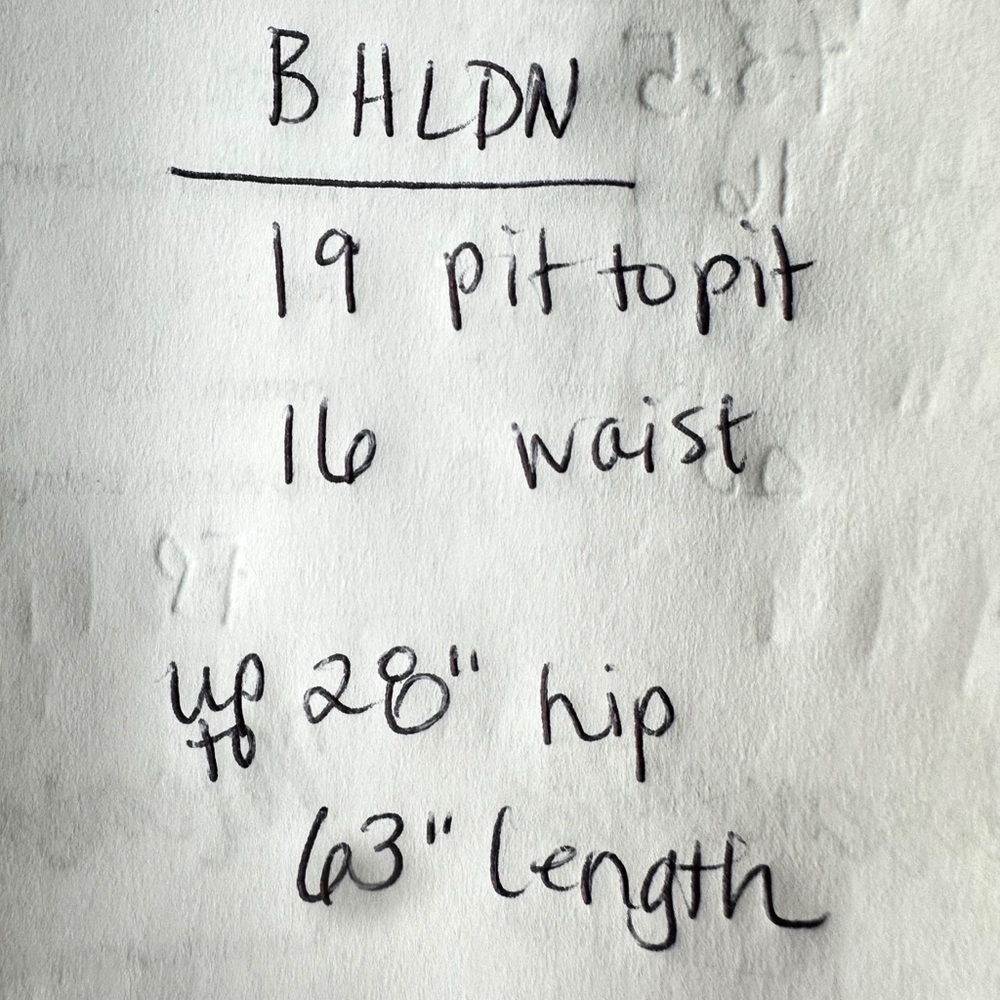 BHLDN
19 pit to pit
16 waist
up to 28" hip
63" length